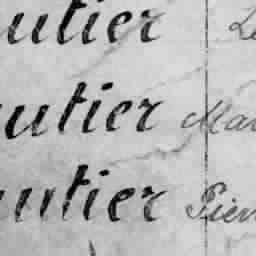 utier Le
utier Mar
utier Pierr